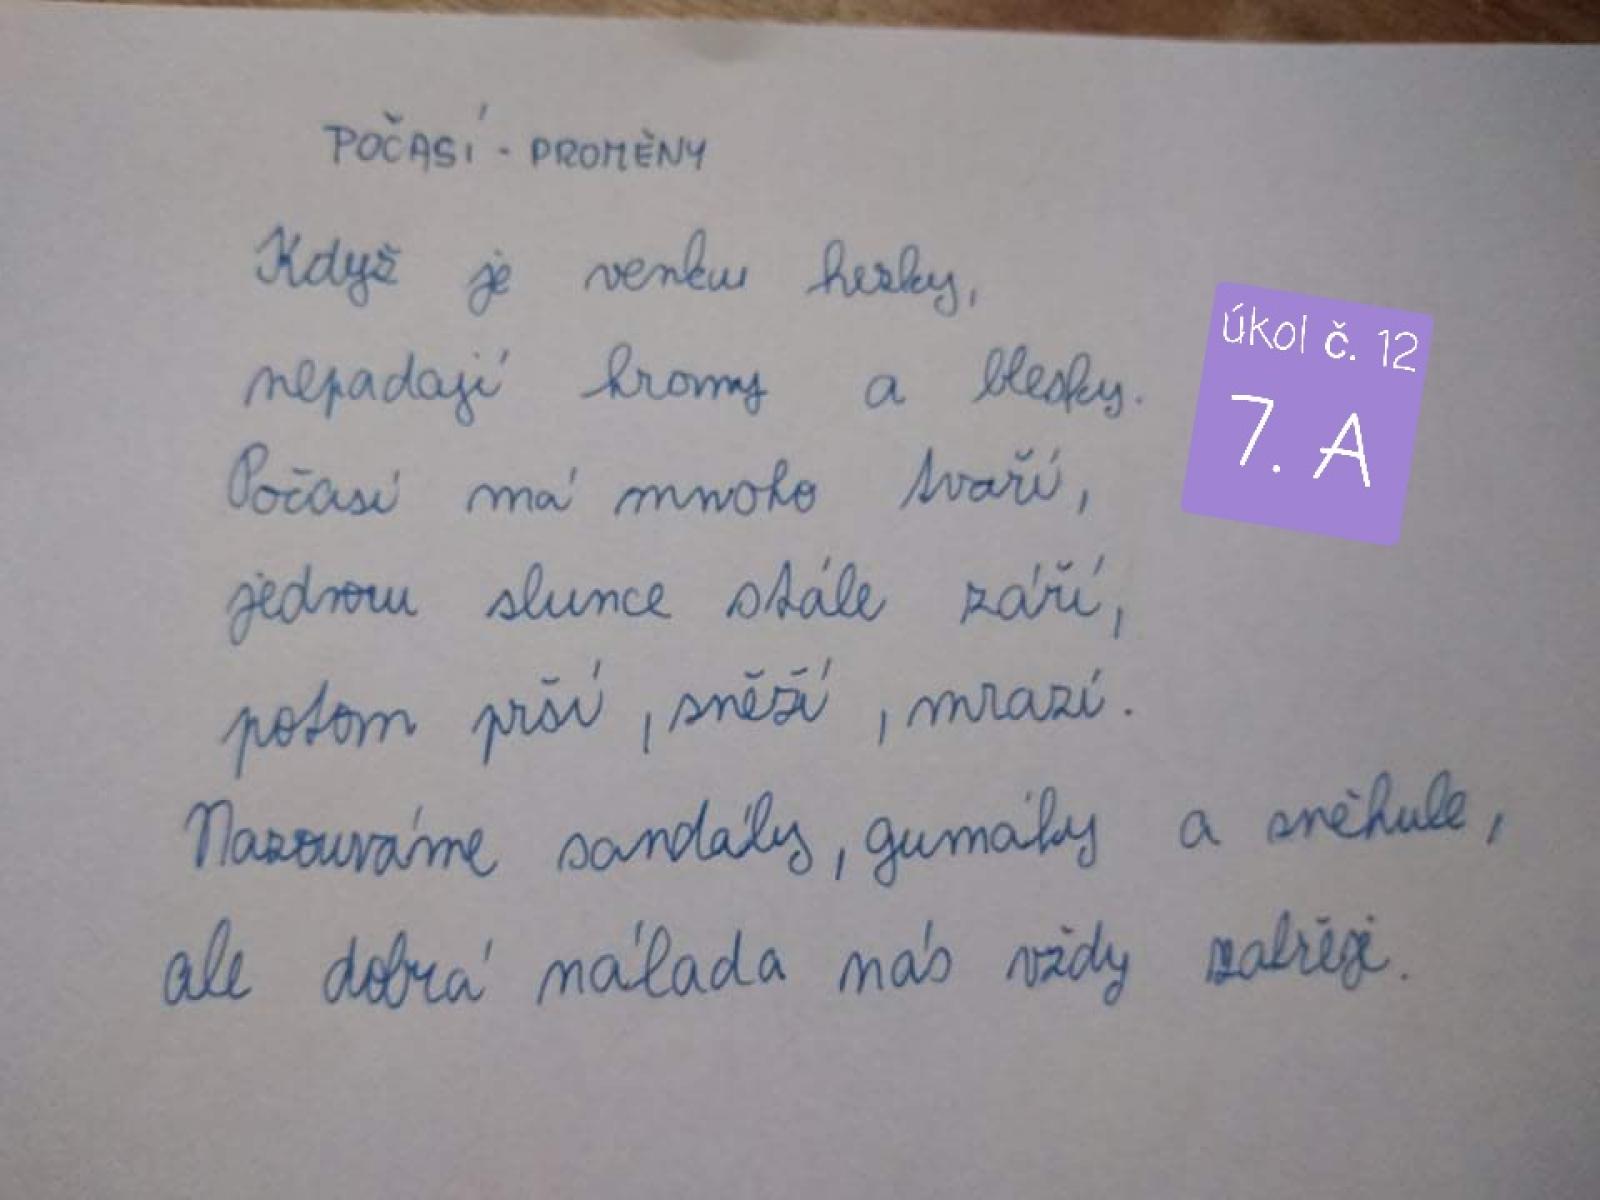 POČASÍ - PROMĚNY
Když je venku hezky,
nepadají hromy a blesky.
Počasí má mnoho tváří,
jednou slunce stále září,
potom prší, sněží, mrazí.
Nazouváme sandály, gumáky a sněhule,
ale dobrá nálada nás vždy zahřěje.
úkol č. 12
7. A